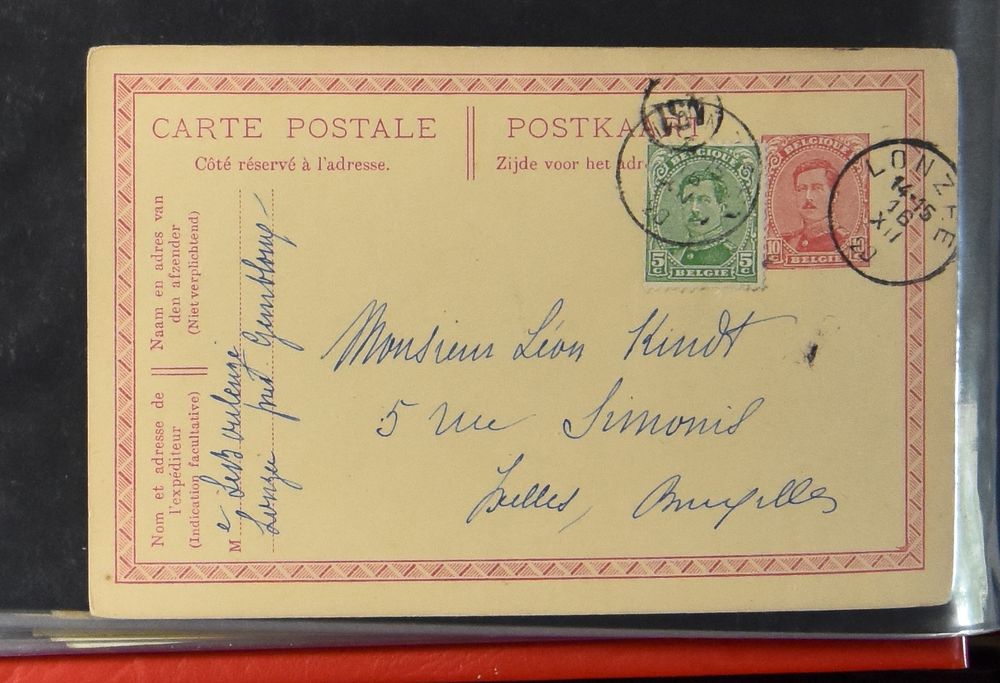 CARTE POSTALE
Côté réservé à l'adresse.
POSTKAART
Zijde voor het adr
BELGIQUE
5c 5c
BELGIË
BELGIQUE
10c
BELGIË
LONZEE
14-15
16
XII
Naam en adres van
den afzender
(Niet verplichtend)
Nom et adresse de
l'expéditeur
(Indication facultative)
Me LeBoulengé
Lonzée près Gembloux
Monsieur Léon Kindt
5 rue Simonis
Ixelles, Bruxelles